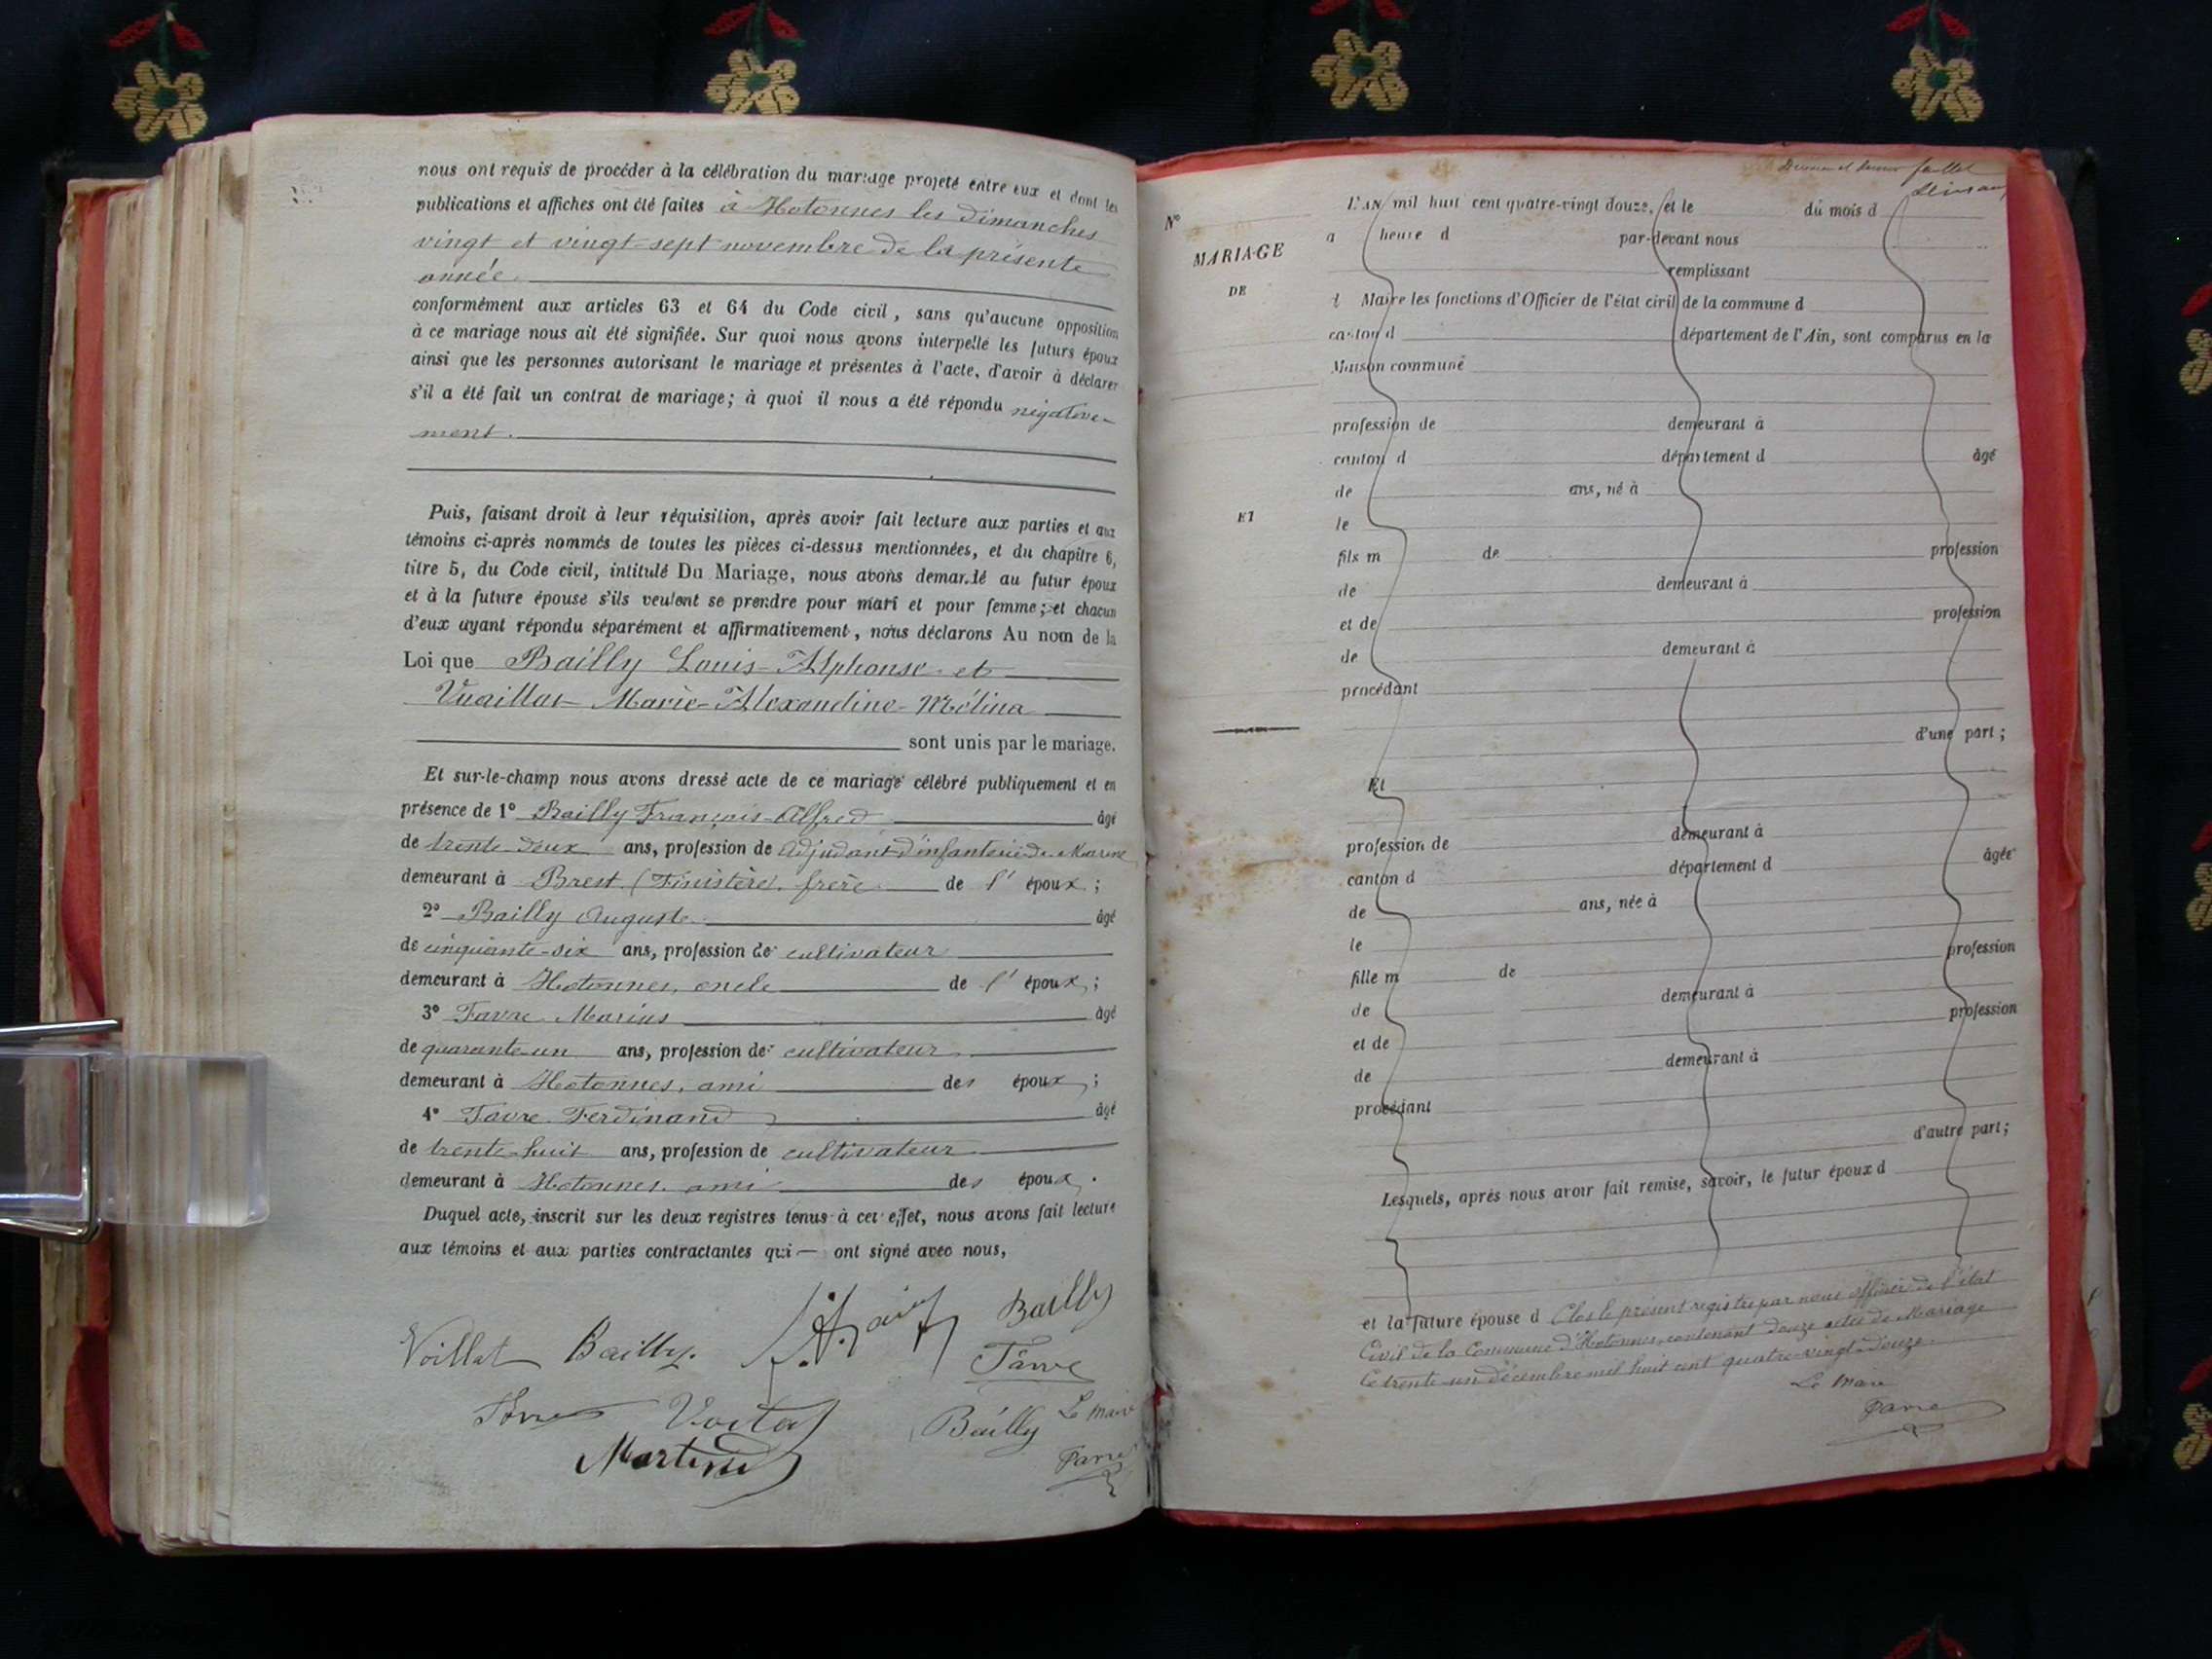 nous ont requis de procéder à la célébration du mariage projeté entre eux et dont les
publications et affiches ont été faites à Hotonnes les dimanches
vingt et vingt-sept novembre de la présente
année.
conformément aux articles 63 et 64 du Code civil, sans qu'aucune opposition
à ce mariage nous ait été signifiée. Sur quoi nous avons interpellé les futurs époux
ainsi que les personnes autorisant le mariage et présentes à l'acte, d'avoir à déclarer
s'il a été fait un contrat de mariage; à quoi il nous a été répondu négative-
ment.
Puis, faisant droit à leur réquisition, après avoir fait lecture aux parties et aux
témoins ci-après nommés de toutes les pièces ci-dessus mentionnées, et du chapitre 6,
titre 5, du Code civil, intitulé Du Mariage, nous avons demandé au futur époux
et à la future épouse s'ils veulent se prendre pour mari et pour femme; et chacun
d'eux ayant répondu séparément et affirmativement, nous déclarons Au nom de la
Loi que Bailly Louis-Alphonse et
Vuaillat Marie-Alexandine-Mélina
sont unis par le mariage.
Et sur-le-champ nous avons dressé acte de ce mariage célébré publiquement et en
présence de 1° Bailly François-Alfred âgé
de trente-deux ans, profession de adjudant d'infanterie de Marine
demeurant à Brest (Finistère), frère de l'époux;
2° Bailly Auguste âgé
de cinquante-six ans, profession de cultivateur
demeurant à Hotonnes, oncle de l'époux;
3° Favre Marius âgé
de quarante-un ans, profession de cultivateur
demeurant à Hotonnes, ami des époux;
4° Favre Ferdinand âgé
de trente-huit ans, profession de cultivateur
demeurant à Hotonnes, ami des époux.
Duquel acte, inscrit sur les deux registres tenus à cet effet, nous avons fait lecture
aux témoins et aux parties contractantes qui ont signé avec nous,
Bailly
Voillat Bailly
Favre
Bailly Le Maire
Favre
feuillet
N°
MARIAGE
DE
ET
L'AN mil huit cent quatre-vingt douze, et le du mois d
a heure d par-devant nous
remplissant
l Maire les fonctions d'Officier de l'état civil de la commune d
canton d département de l'Ain, sont comparus en la
Maison commune
profession de demeurant à
canton d département d âgé
de ans, né à
le
fils m de profession
de demeurant à
et de profession
de demeurant à
procédant
d'une part;
Et
profession de demeurant à
canton d département d âgée
de ans, née à
le
fille m de profession
de demeurant à
et de profession
de demeurant à
procédant
d'autre part;
Lesquels, après nous avoir fait remise, savoir, le futur époux d
et la future épouse d Clos le présent registre par nous officier de l'état
Civil de la Commune d'Hotonnes, contenant douze actes de Mariage
Le trente-un décembre mil huit cent quatre-vingt-douze.
Le Maire
Favre